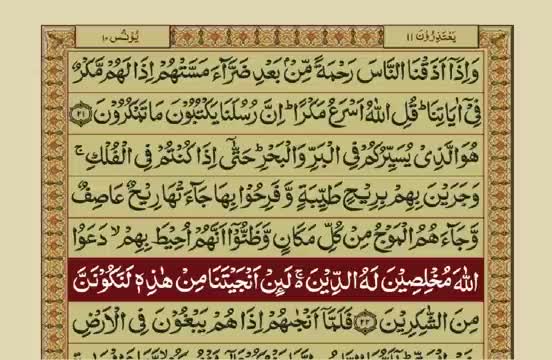 یَعْتَذِرُوْنَ ۱۱
یُوْنُس ۱۰
وَاِذَاۤ اَذَقْنَا النَّاسَ رَحْمَةً مِّنْۢ بَعْدِ ضَرَّآءَ مَسَّتْهُمْ اِذَا لَهُمْ مَّكْرٌ
فِیْۤ اٰیَاتِنَا ؕ قُلِ اللّٰهُ اَسْرَعُ مَكْرًا ؕ اِنَّ رُسُلَنَا یَكْتُبُوْنَ مَا تَمْكُرُوْنَ ﴿۲۱﴾
هُوَ الَّذِیْ یُسَیِّرُكُمْ فِی الْبَرِّ وَالْبَحْرِ ؕ حَتّٰۤی اِذَا كُنْتُمْ فِی الْفُلْكِ ۚ
وَجَرَیْنَ بِهِمْ بِرِیْحٍ طَیِّبَةٍ وَّفَرِحُوْا بِهَا جَآءَتْهَا رِیْحٌ عَاصِفٌ
وَّجَآءَهُمُ الْمَوْجُ مِنْ كُلِّ مَكَانٍ وَّظَنُّوْۤا اَنَّهُمْ اُحِیْطَ بِهِمْ ۙ دَعَوُا
اللّٰهَ مُخْلِصِیْنَ لَهُ الدِّیْنَ ۚ۬ لَئِنْ اَنْجَیْتَنَا مِنْ هٰذِهٖ لَنَكُوْنَنَّ
مِنَ الشّٰكِرِیْنَ ﴿۲۲﴾ فَلَمَّاۤ اَنْجٰىهُمْ اِذَا هُمْ یَبْغُوْنَ فِی الْاَرْضِ